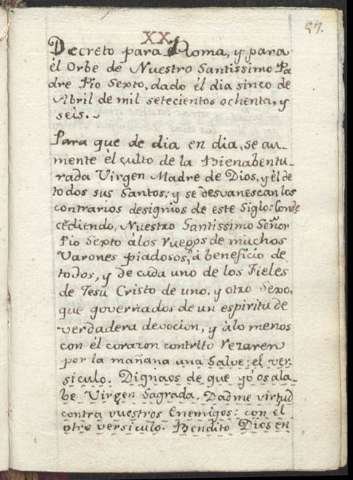 57.
XX.
Decreto para Roma, y para
el Orbe de Nuestro Santissimo Pa
dre Pio Sexto, dado el dia sinco de
Abril de mil setecientos ochenta, y
seis.
Para que de dia en dia, se au
mente el culto de la Bienabentu
rada Virgen Madre de Dios, y el de
todos sus Santos, y se desvanescan los
contrarios designios de este Siglo: Conde
cediendo, Nuestro Santissimo Señor
Pio Sexto a los ruegos de muchos
Varones piadosos, á beneficio de
todos, y de cada uno de los Fieles
de Jesu Cristo de uno, y otro Sexo,
que governados de un espiritu de
verdadera devocion, y a lo menos
con el corazon contrito rezaren
por la mañana una Salve; el ver
siculo. Dignaos de que yo os ala
be Virgen Sagrada. Dadme virtud
contra vuestros Enemigos: con el
otro versiculo. Bendito Dios en